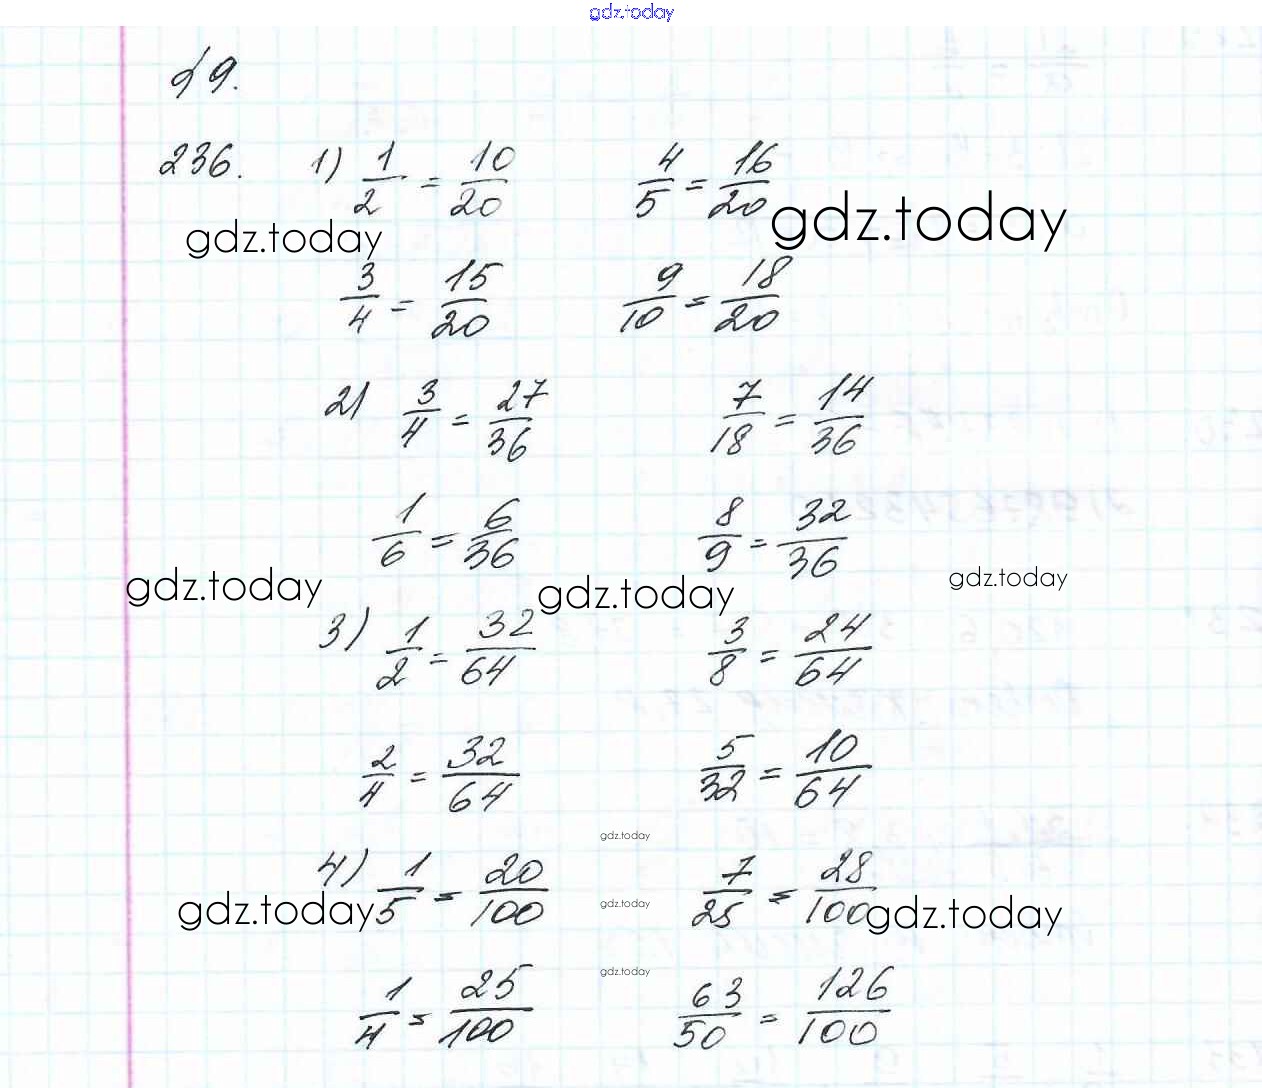 gdz.today
§9.
236. 1) 1/2 = 10/20 4/5 = 16/20
gdz.today gdz.today
3/4 = 15/20 9/10 = 18/20
2) 3/4 = 27/36 7/18 = 14/36
1/6 = 6/36 8/9 = 32/36
gdz.today gdz.today gdz.today
3) 1/2 = 32/64 3/8 = 24/64
2/4 = 32/64 5/32 = 10/64
gdz.today
4) 1/5 = 20/100 7/25 = 28/100
gdz.today gdz.today gdz.today
gdz.today
1/4 = 25/100 63/50 = 126/100